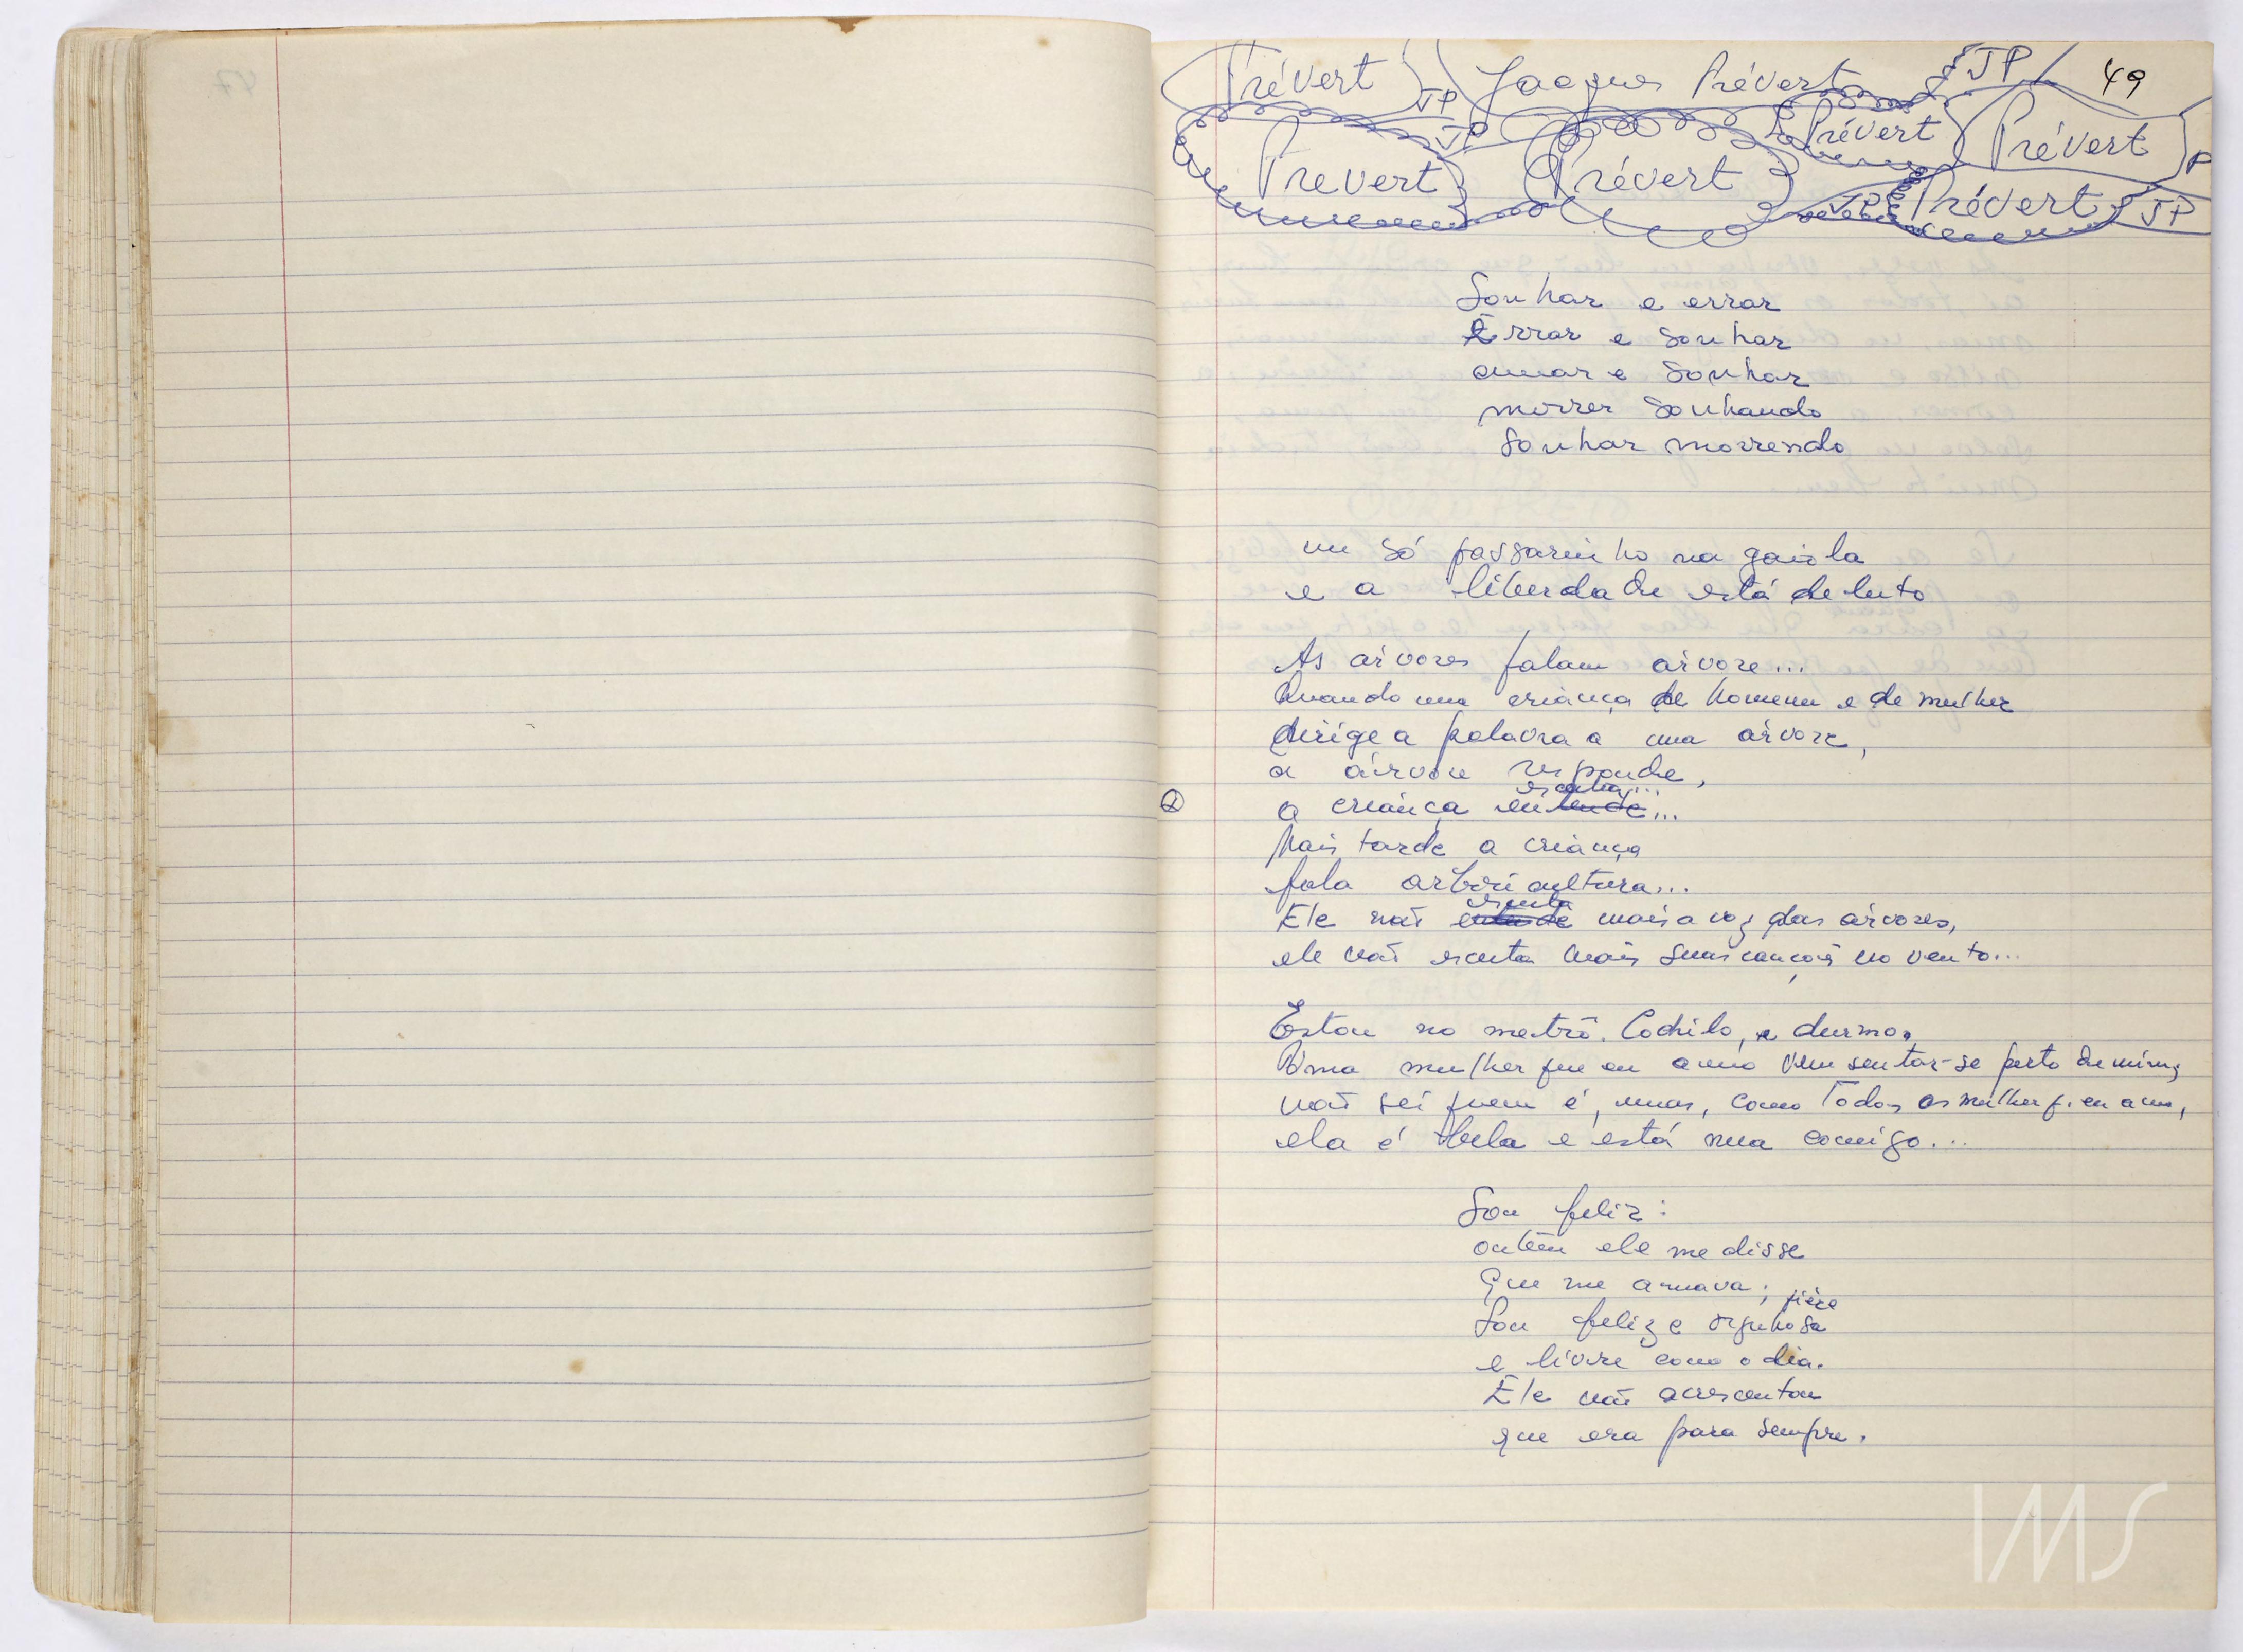 Prévert JP Jacques Prévert JP 49
JP Prévert Prévert P
Prévert Prévert JP Prévert JP
Sonhar e errar
Errar e sonhar
amar e sonhar
morrer sonhando
sonhar morrendo
um só passarinho na gaiola
e a liberdade está de luto
As árvores falam árvore...
Quando uma criança de homem e de mulher
dirige a palavra a uma árvore,
a árvore responde,
escuta...
② a criança entende...
Mais tarde a criança
fala arboricultura...
escuta
Ele não entende mais a voz das árvores,
ele não escuta mais suas canções no vento...
Estou no metrô. Cochilo, e durmo.
Uma mulher que eu amo vem sentar-se perto de mim;
não sei quem é, mas, como todas as mulher q. eu amo,
ela é bela e está nua comigo...
Sou feliz:
ontem ele me disse
que me amava;
fière
Sou feliz e orgulhosa
e livre como o dia.
Ele não acrescentou
que era para sempre.
IMS